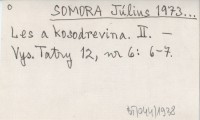 SOMORA Július 1973...
Les a kosodrevina. II. –
Vys. Tatry 12, nr 6: 6–7.